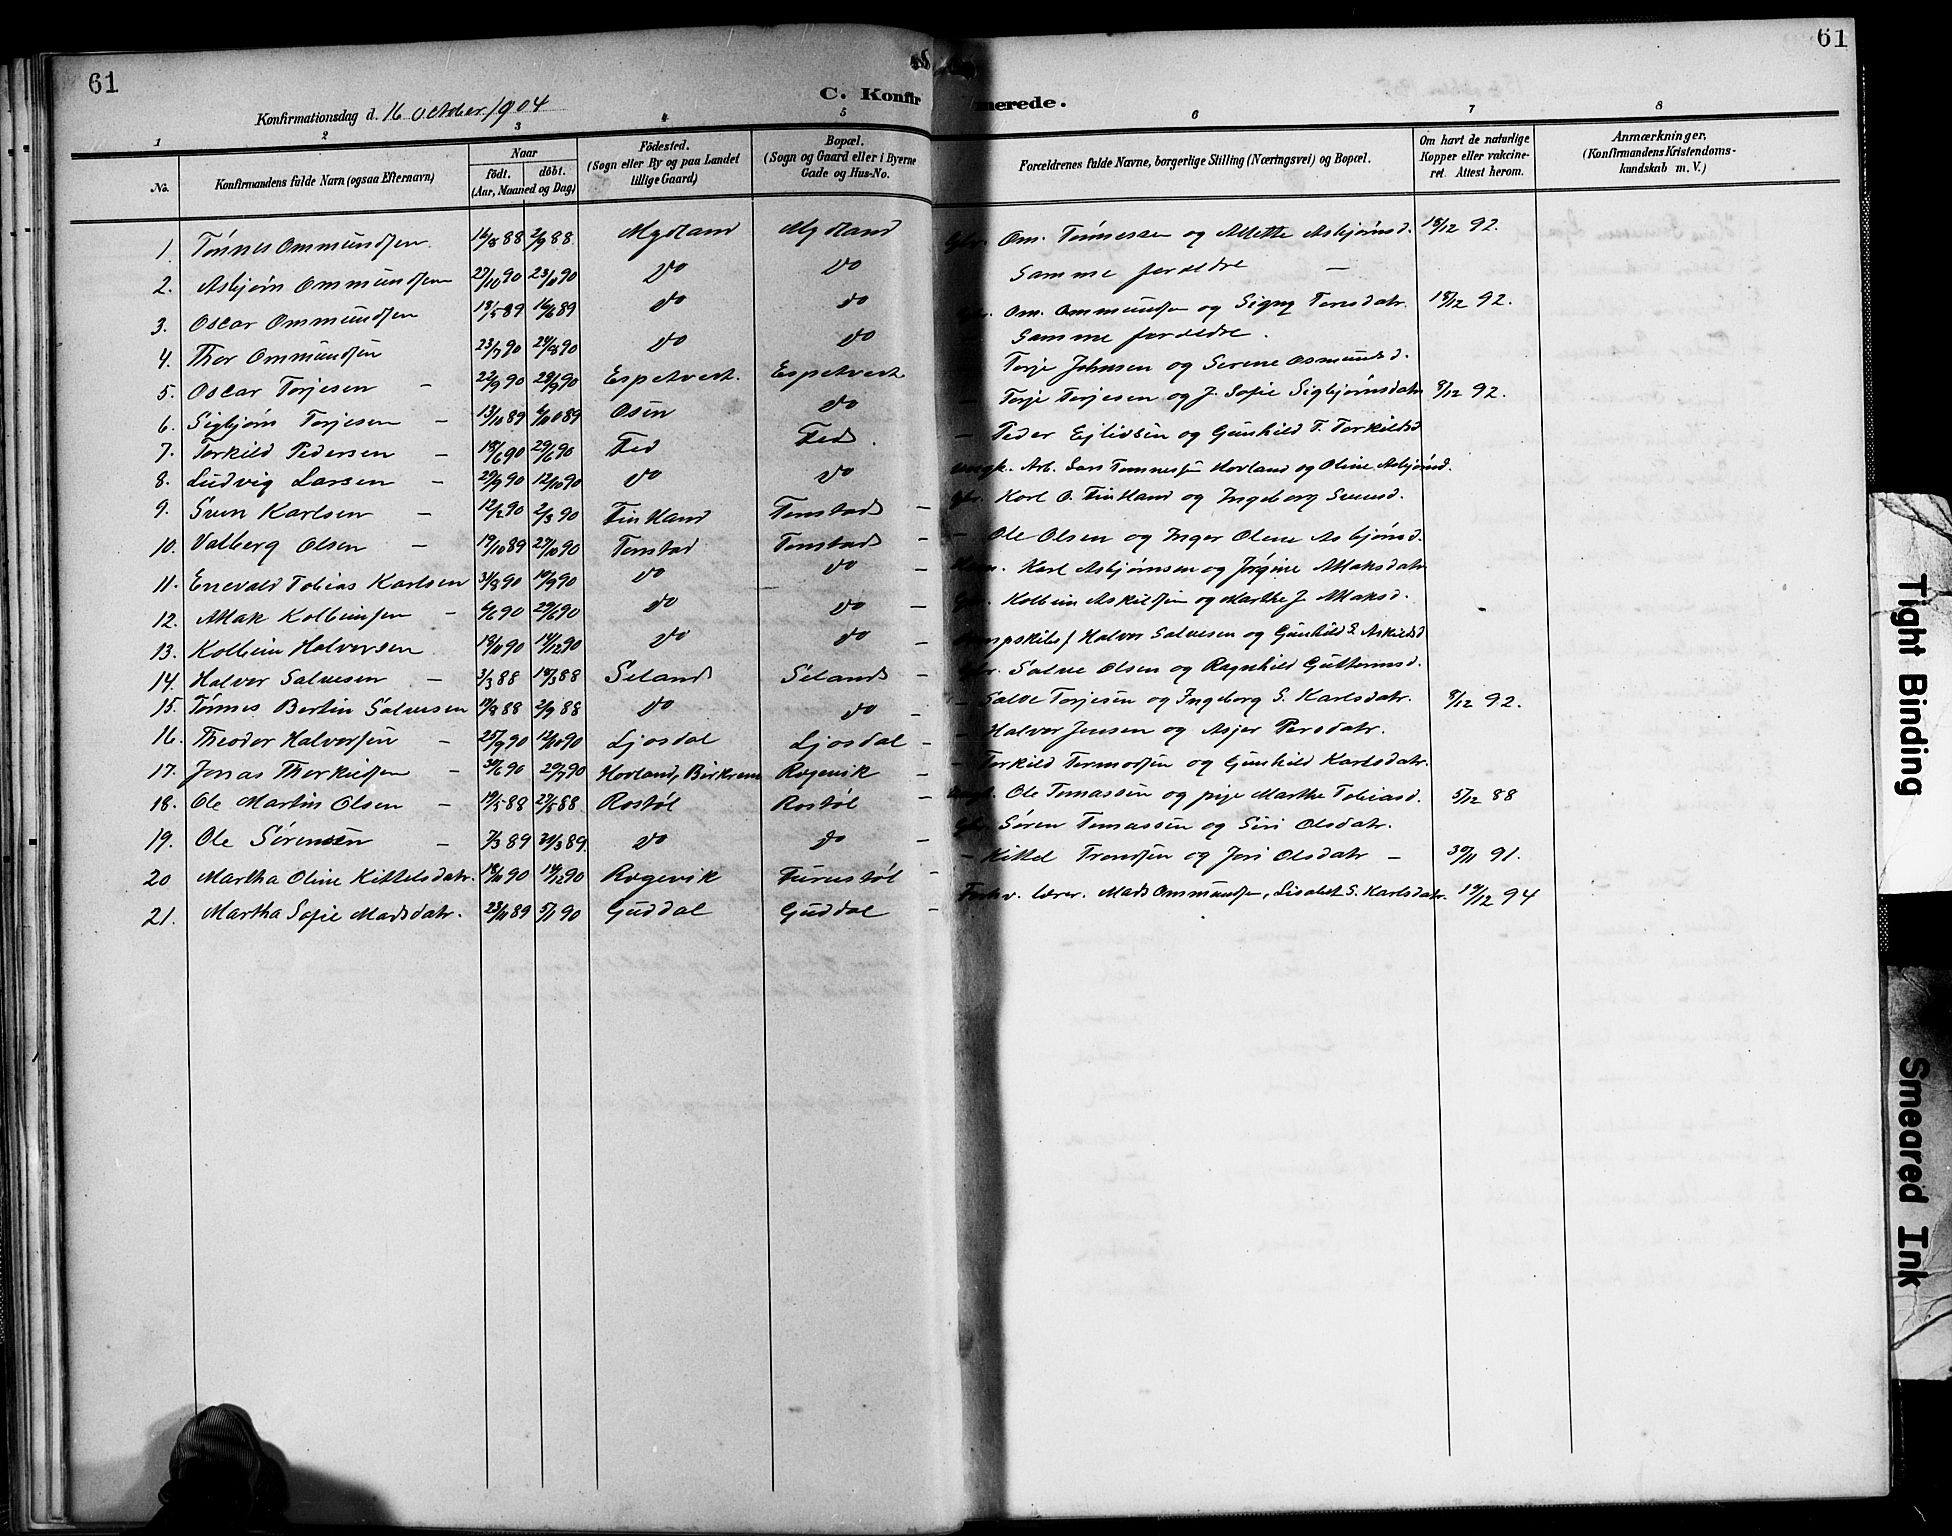 61
61
C. Konfirmerede.
Konfirmationsdag d. 16 October 1904
1 2 3 4 5 6 7 8
No. Konfirmandens fulde Navn (ogsaa Efternavn) Naar födt. döbt. (Aar, Maaned og Dag) Födested. (Sogn eller By og paa Landet tillige Gaard) Bopæl. (Sogn og Gaard eller i Byerne Gade og Hus-No. Forældrenes fulde Navne, borgerlige Stilling (Næringsvei) og Bopæl. Om havt de naturlige Kopper eller vakcineret. Attest herom. Anmærkninger. (Konfirmandens Kristendomskundskab m. V.)
1. Tønnes Ommundsen 16/8 88 2/9 88 Mydland Mydland Gbr. Om. Tønnessen og Allette Asbjørnsd. 18/12 92.
2. Asbjørn Ommundsen 27/10 90 23/11 90 do do Samme forældre —
3. Oscar Ommundsen 18/5 89 16/6 89 do do Gbr. Om. Ommundsen og Signy Toresdatr. 18/12 92.
4. Thor Ommundsen 23/7 90 24/8 90 do do Samme forældre.
5. Oscar Torjesen — 22/9 90 28/9 90 Espetvedt. Espetvedt Torje Johnsen og Serene Osmundsd.
6. Sigbjørn Torjesen — 13/10 89 Osen do — Torje Torjesen og J. Sofie Sigbjørnsdatr 8/12 92.
7. Torkild Pedersen — 18/6 90 29/6 90 Fed Fed. — Peder Ejlivsen og Gunhild T. Torkildsd
8. Ludvig Larsen — 29/9 90 12/10 90 do do Arb. Lars Tønnessen Hovland og Oline Asbjørnsd.
9. Sven Karlsen — 12/2 90 2/3 90 Fintland Tonstad — Gbr. Karl O. Fintland og Ingeborg Svensd.
10. Valberg Olsen — 19/10 89 27/10 90 Tonstad Tonstad — — Ole Olsen og Inger Olene Asbjørnsd.
11. Enevald Tobias Karlsen 31/8 90 10/9 90 do do — Karl Asbjørnsen og Jørgine Atlaksdatr
12. Atlak Kolbeinsen — 6/6 90 29/6 90 do do — Gbr. Kolbein Askildsen og Marthe J. Atlaksd.
13. Kolbein Halvorsen 18/11 90 14/12 90 do do — Halvor Salvesen og Gunhild S. Askildsd
14. Halvor Salvesen — 3/3 88 18/3 88 Seland Seland — Gbr. Salve Olsen og Ragnhild Guttormsd.
15. Tønnes Bertin Salvesen 19/8 88 2/9 88 do do — — Salve Torjesen og Ingeborg S. Karlsdatr. 8/12 92.
16. Theodor Halvorsen — 25/9 90 12/10 90 Ljosdal Ljosdal — — Halvor Jensen og Asjer Persdatr.
17. Jonas Thorkildsen — 30/6 90 20/7 90 Hovland, Birkrem Rogevik — — Torkild Tormodsen og Gunhild Karlsdatr.
18. Ole Martin Olsen — 19/5 88 27/5 88 Rostøl Rostøl — Ole Tomassen og pige Marthe Tobiasd. 5/12 88
19. Ole Sørensen — 7/3 89 31/3 89. do do — Gbr. Søren Tomassen og Siri Olsdatr.
20 Martha Oline Kittelsdatr. 18/11 90 14/12 90 Rogevik Furustøl — — Kittel Trondsen og Jori Olsdatr — 30/11 91.
21. Martha Sofie Madsdatr. 23/11 89 5/1 90 Guddal Guddal — Forhv. lærer. Mads Ommundsen, Lisabet S. Karlsdatr. 19/12 94
Tight Binding
Smeared Ink